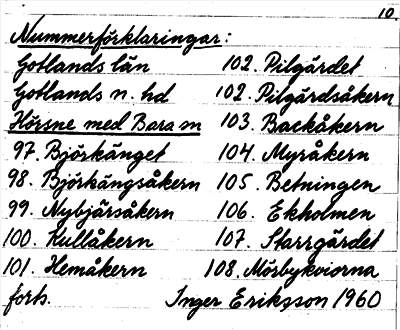 10.
Nummerförklaringar:
Gotlands län 102. Pilgärdet
Gotlands n. hd 102. Pilgärdsåkern
Hörsne med Bara sn 103. Backåkern
97. Björkänget 104. Myråkern
98. Björkängsåkern 105. Betningen
99. Nybjärsåkern 106. Ekholmen
100. Kullåkern 107. Starrgärdet
101. Hemåkern 108. Mörbykviorna
forts. Inger Eriksson 1960